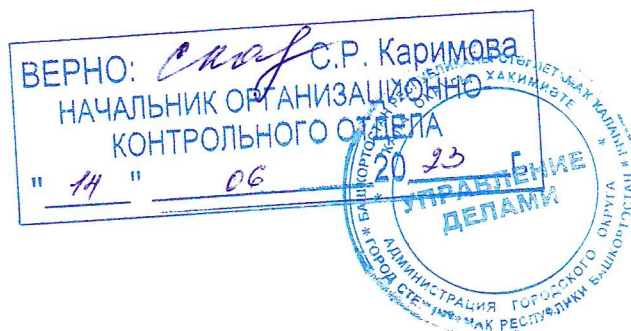 ВЕРНО: С.Р. Каримова
НАЧАЛЬНИК ОРГАНИЗАЦИОННО-
КОНТРОЛЬНОГО ОТДЕЛА
" 14 " 06 20 23 г.
УПРАВЛЕНИЕ
ДЕЛАМИ
АДМИНИСТРАЦИЯ ГОРОДСКОГО ОКРУГА
РЕСПУБЛИКИ БАШКОРТОСТАН